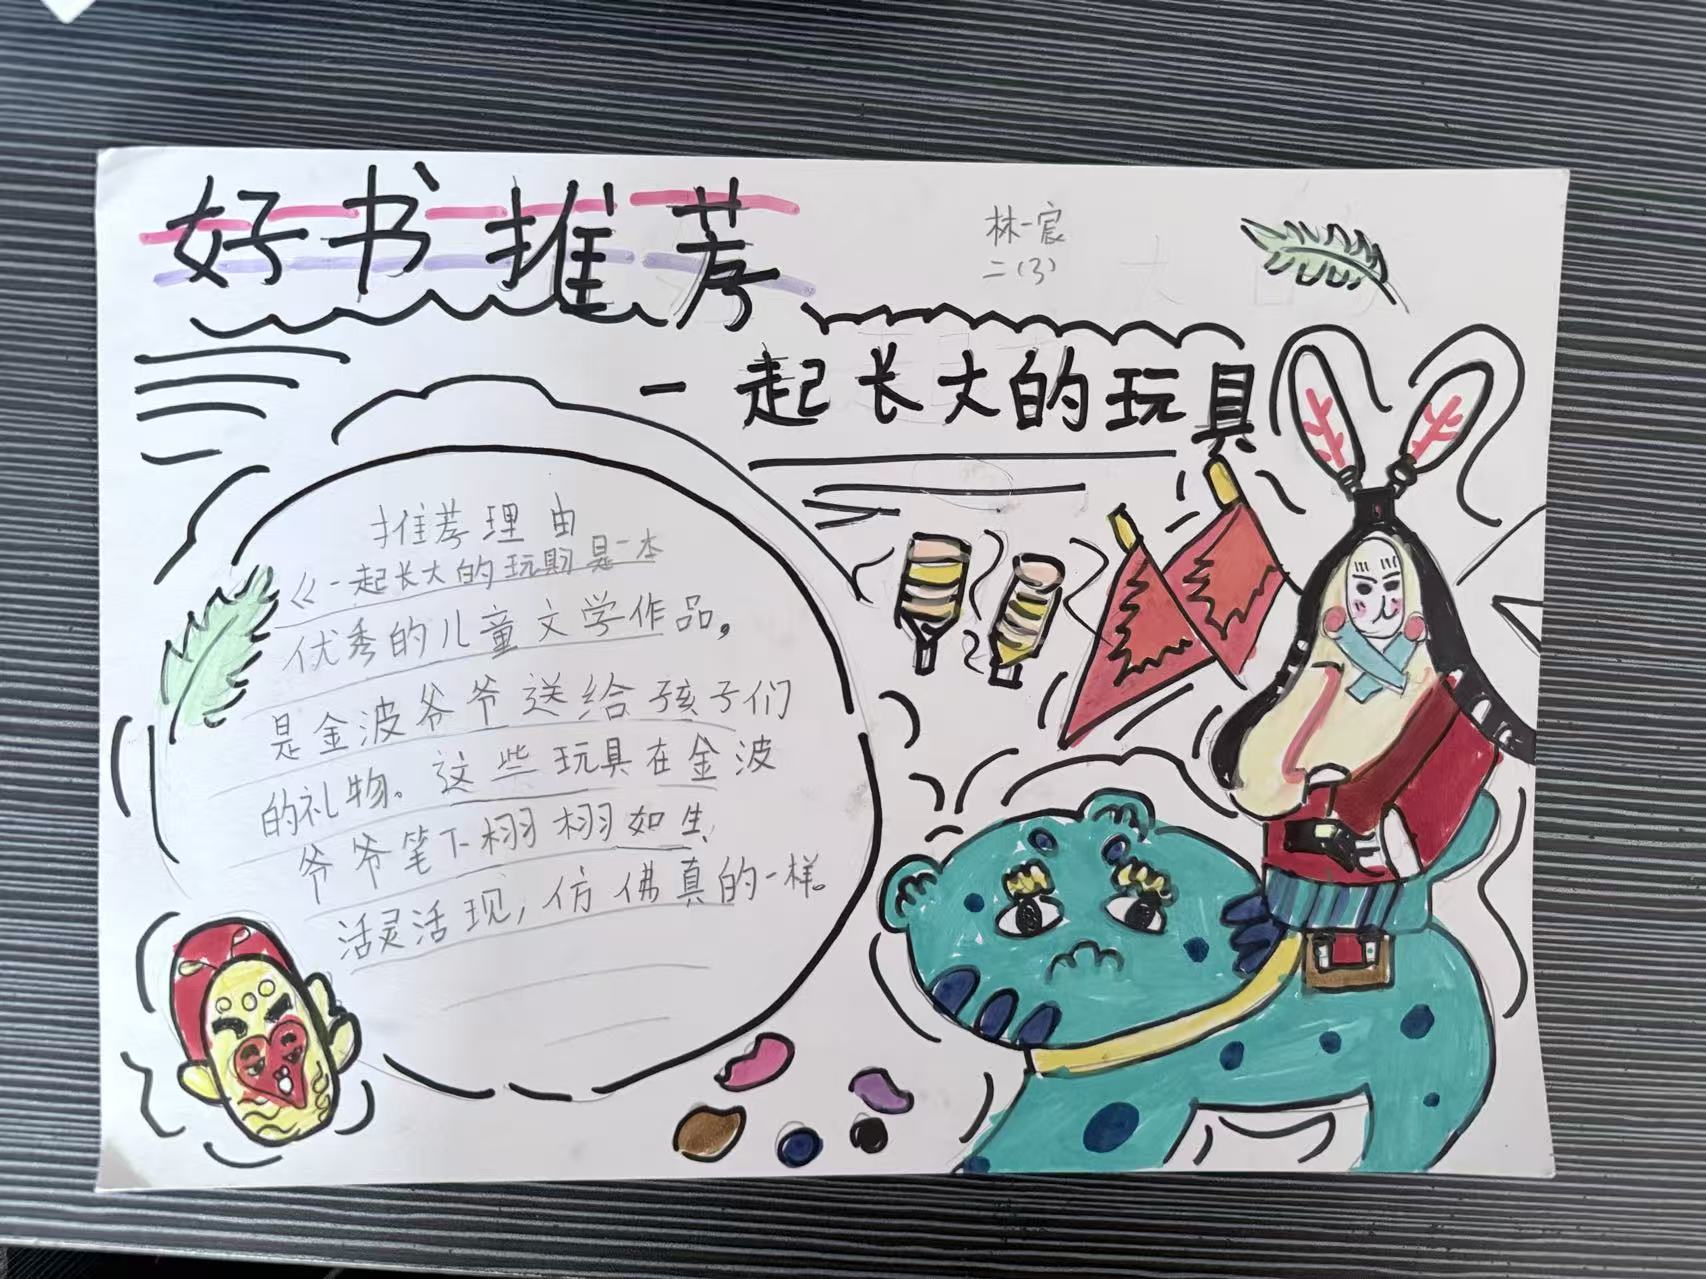 好书推荐
林一宸
二(3)
一起长大的玩具
推荐理由
《一起长大的玩具》是一本
优秀的儿童文学作品。
是金波爷爷送给孩子们
的礼物。这些玩具在金波
爷爷笔下栩栩如生、
活灵活现,仿佛真的一样。